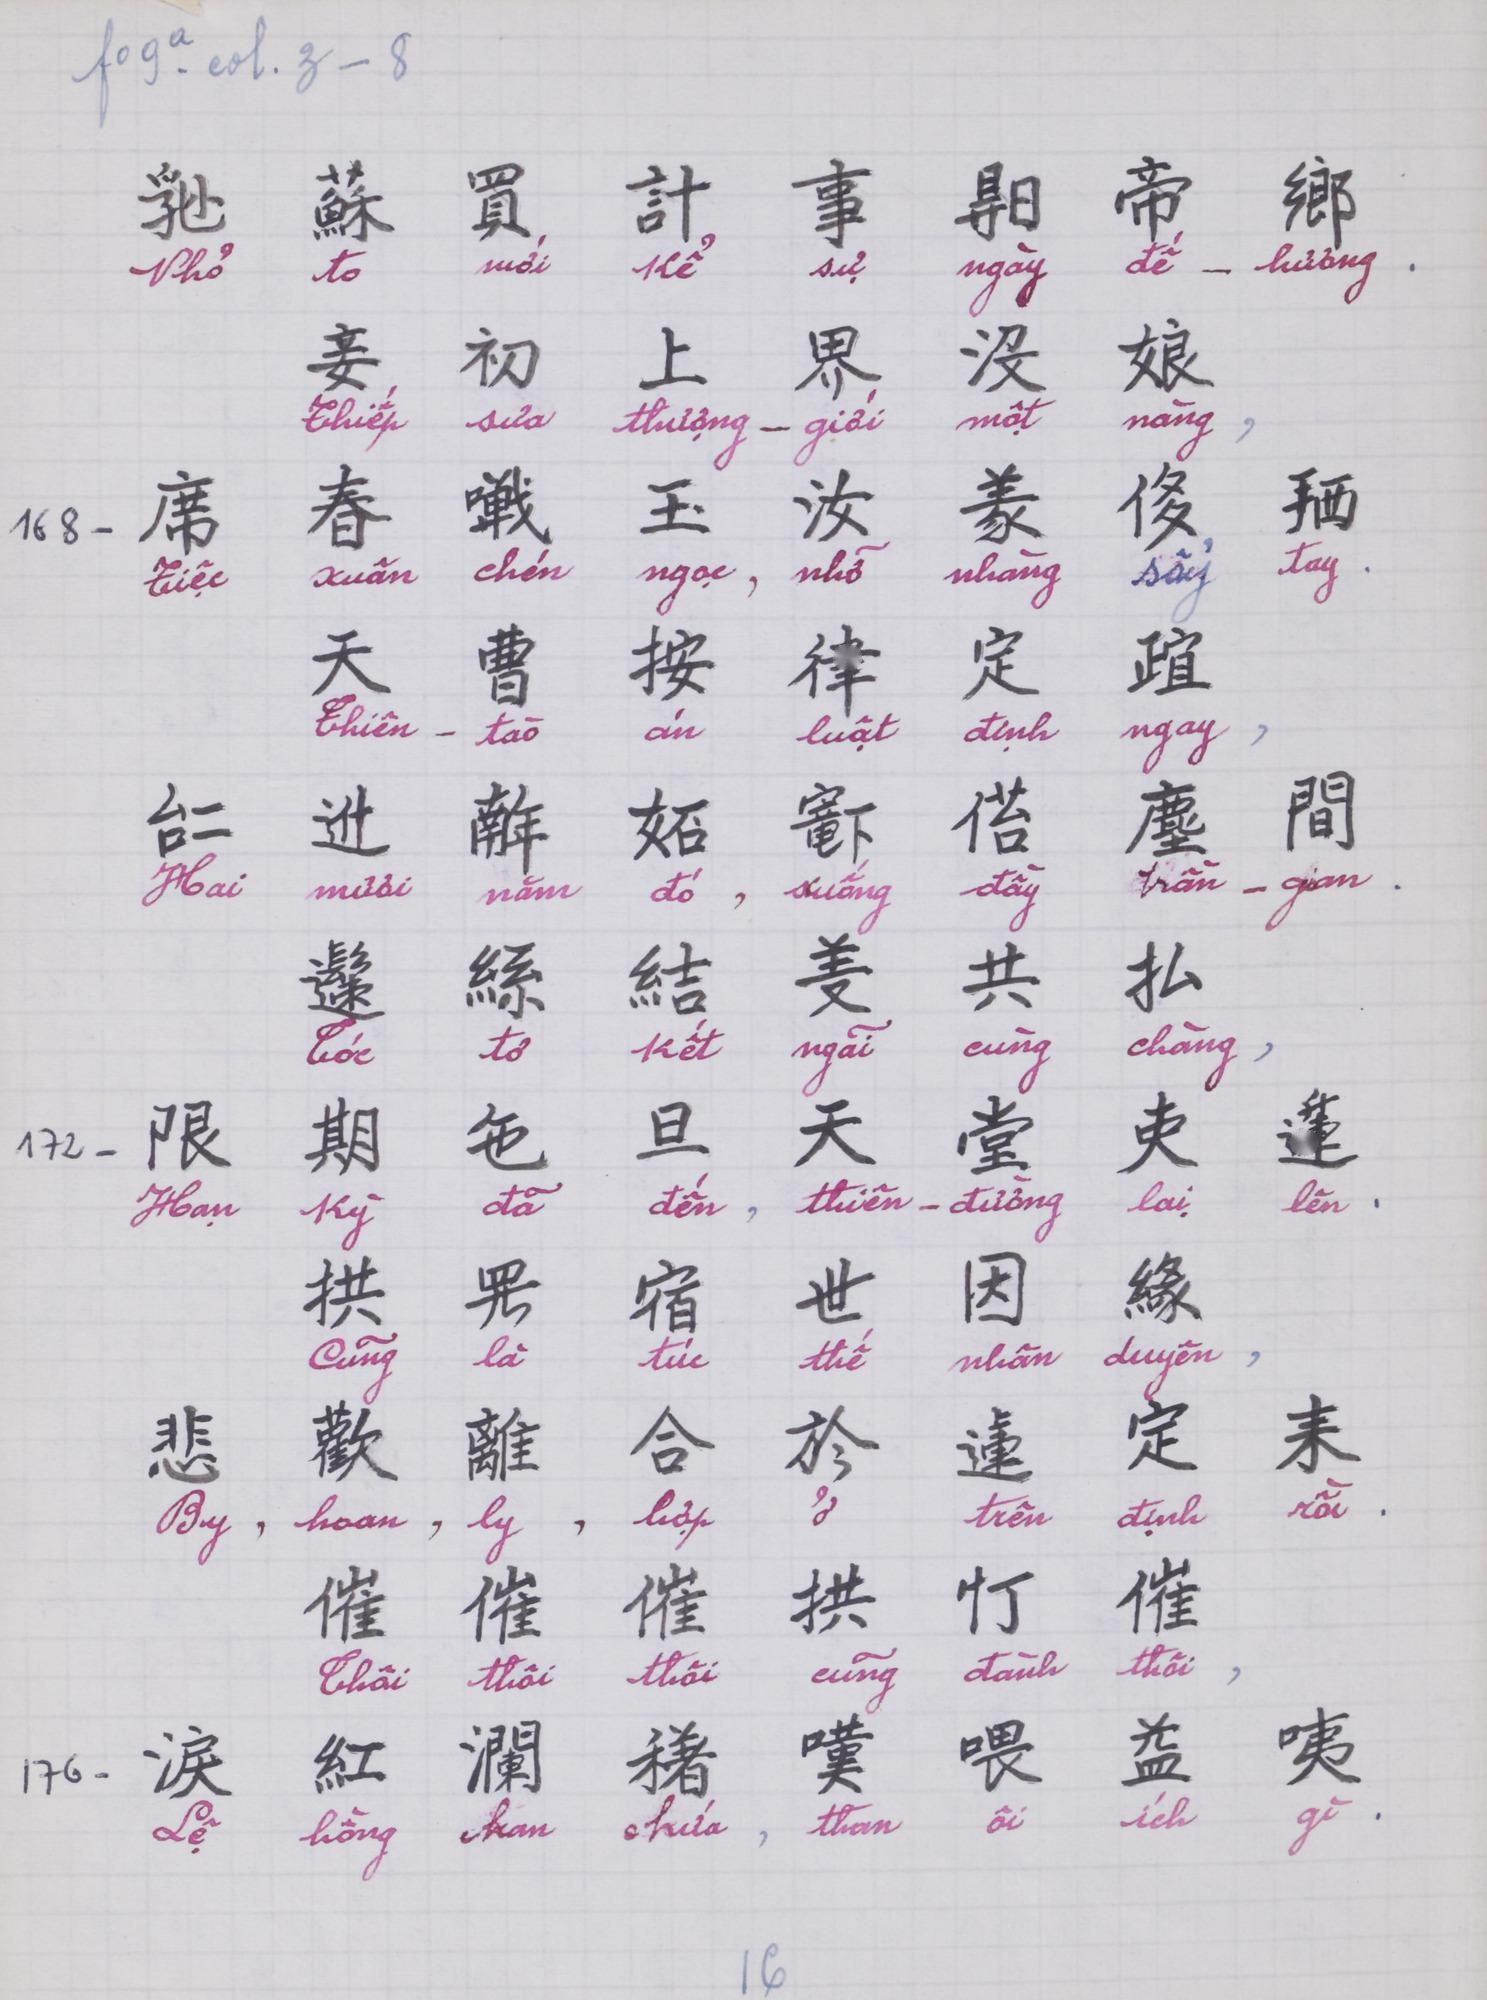 fo 9a. col. 3 – 8
𡮈 蘇 買 計 事 𣈜 帝 鄉
Nhỏ to mới kể sự ngày đế – hương .
妾 初 上 界 没 娘
Thiếp sưa thượng – giới một nàng ,
168 – 席 春 𡃹 玉 汝 𢭂
Tiệc xuân chén ngọc , nhỡ nhàng sẩy tay .
天 曹 按 律 定 𣦍
Thiên – tào án luật định ngay ,
𠄩 𨑮 𢆥 妬 𨑜 塵 間
Hai mươi năm đó , xuống đầy trần – gian .
絲 結 共 払
Tóc tơ kết ngãi cùng chàng ,
172 – 限 期 旦 天 堂 吏 𨖲
Hạn kỳ đã đến , thiên – đường lại lên .
拱 𱺵 宿 世 因 緣
Cũng là túc thế nhân duyên ,
悲 歡 離 合 於 𨕭 定 耒
By , hoan , ly , hợp ở trên định rồi .
催 催 催 拱 忊 催
Thôi thôi thôi cũng đành thôi ,
176 – 淚 紅 瀾 嘆 喂 益 咦
Lệ hồng chan chứa , than ôi ích gì .
16